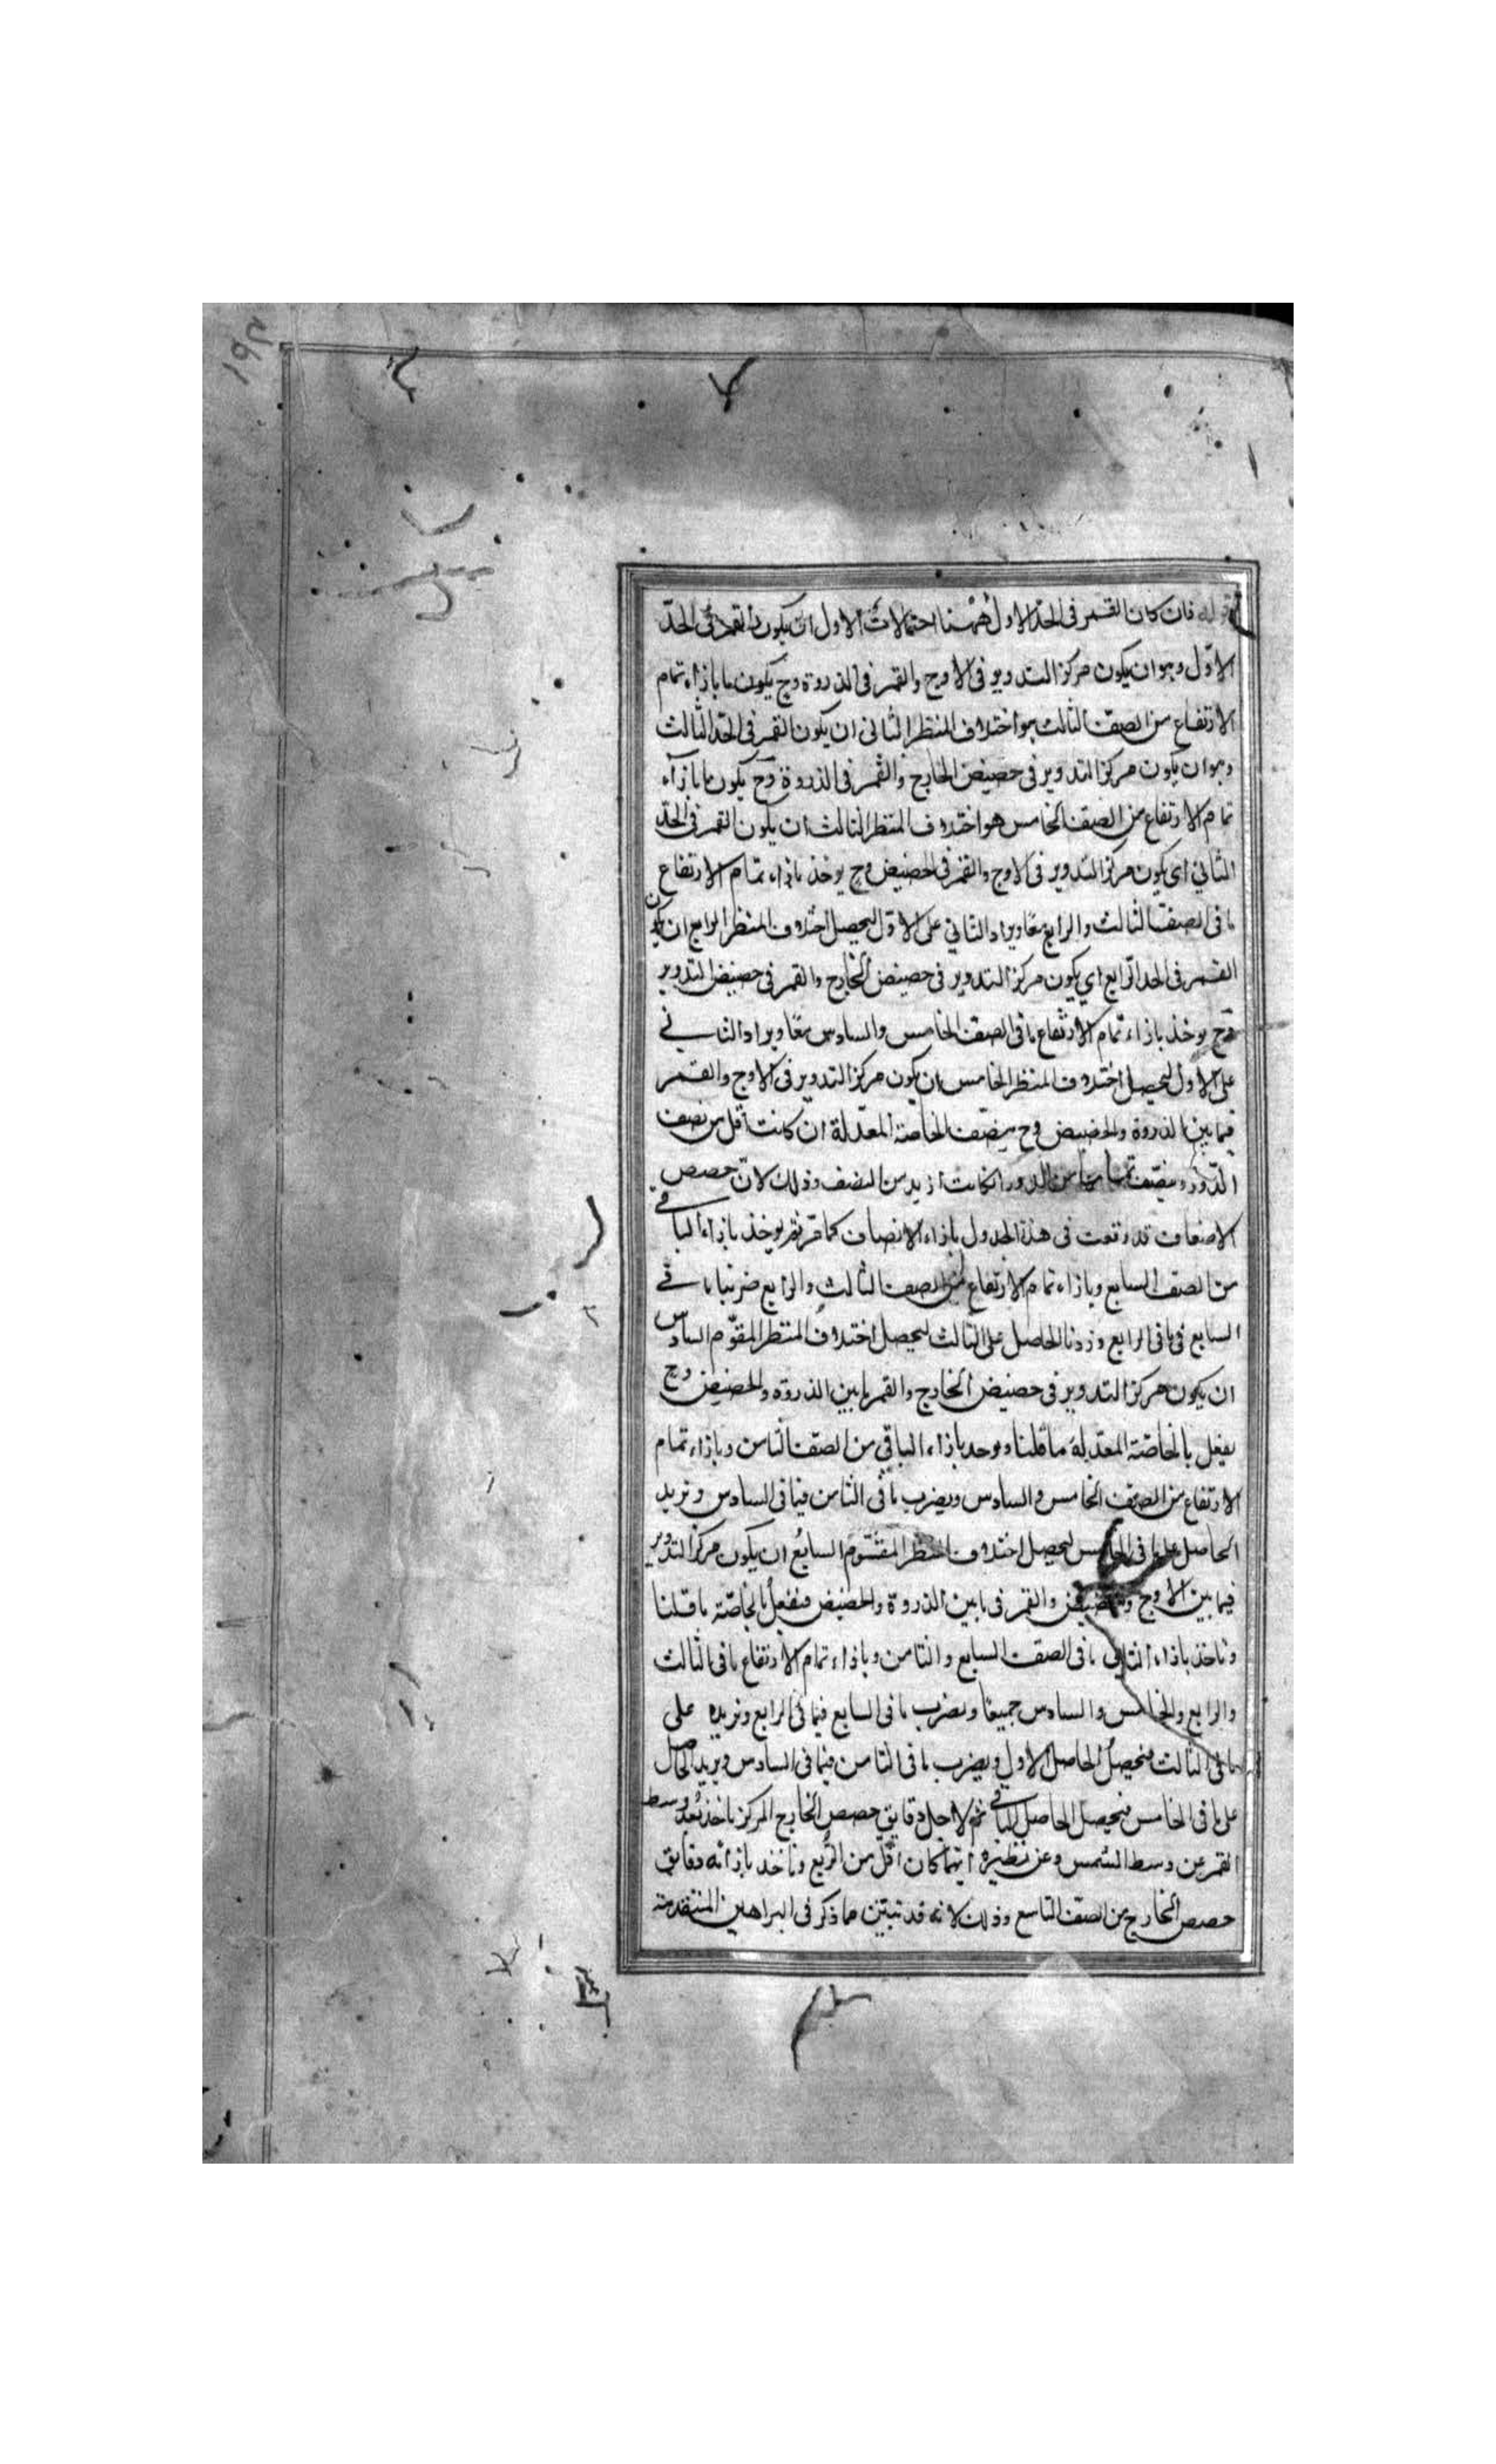 قوله فان كان القمر فى الحدّ الاول ههنا احتمالات الاول ان يكون القمر فى الحدّ
الاوّل وهو ان يكون مركز التدوير فى الاوج والقمر فى الذروة وح يكون ما بازاء تمام
الارتفاع من الصف الثالث هو اختلاف المنظر الثانى ان يكون القمر فى الحدّ الثالث
وهو ان يكون مركز التدوير فى حضيض الخارج والقمر فى الذروة وح يكون ما بازآء
تمام الارتفاع من الصف الخامس هو اختلاف المنظر الثالث ان يكون القمر فى الحدّ
الثانى اى يكون مركز التدوير فى الاوج والقمر فى الحضيض وح يوخذ بازاء تمام الارتفاع
ما فى الصف الثالث والرابع معًا ويزاد الثانى على الاوّل ليحصل اختلاف المنظر الرابع ان يكون
القمر فى الحد الرّابع اى يكون مركز التدوير فى حضيض الخارج والقمر فى حضيض التدوير
وح يوخذ بازاء تمام الارتفاع ما فى الصف الخامس والسادس معًا ويزاد الثانى
على الاول ليحصل اختلاف المنظر الخامس ان يكون مركز التدوير فى الاوج والقمر
فيما بين الذروة والحضيض وح ينصّف الخاصة المعدّلة ان كانت اقل من نصف
الدّور وينصّف تمامها من الدور ان كانت ازيد من النصف وذلك لانّ حصص
الاضعاف قد وقعت فى هذا الجدول بازاء الانصاف كما مرّ ثم يوخذ بازاء الباقى
من الصف السابع وبازاء تمام الارتفاع من الصف الثالث والرابع ضربنا ما فى
السابع فى ما فى الرابع وزدنا الحاصل على الثالث ليحصل اختلاف المنظر المقوّم السادس
ان يكون مركز التدوير فى حضيض الخارج والقمر ما بين الذروة والحضيض وح
يفعل بالخاصّة المعدّلة ما قلنا ويوخذ بازاء الباقى من الصف الثامن وبازاء تمام
الارتفاع من الصف الخامس والسادس ويضرب ما فى الثامن فيما فى السادس ونزيد
الحاصل على ما فى الخامس ليحصل اختلاف المنظر المقوّم السابع ان يكون مركز التدوير
فيما بين الاوج والحضيض والقمر فى ما بين الذروة والحضيض فنفعل بالخاصّة ما قلنا
وناخذ بازاء الباقى ما فى الصف السابع والثامن وبازاء تمام الارتفاع ما فى الثالث
والرابع والخامس والسادس جميعًا ونضرب ما فى السابع فيما فى الرابع ونزيده على
ما فى الثالث فيحصل الحاصل الاول ويضرب ما فى الثامن فيما فى السادس ويزيد الحاصل
على ما فى الخامس فيحصل الحاصل الثانى ثم لاجل دقايق حصص الخارج المركز ناخذ بُعد وسط
القمر عن وسط الشمس وعن نظيره ايّهما كان اقلّ من الرّبع وناخذ بازائه دقايق
حصص الخارج من الصف التاسع وذلك لانه قد تبيّن مما ذكر فى البراهين المتقدمة